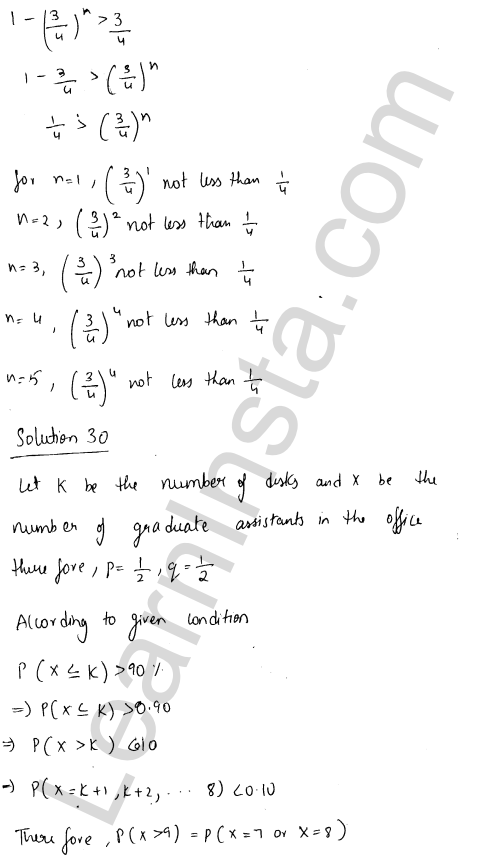 1 - (3/4)^n > 3/4
1 - 3/4 > (3/4)^n
1/4 > (3/4)^n
for n=1, (3/4)^1 not less than 1/4
n=2, (3/4)^2 not less than 1/4
n=3, (3/4)^3 not less than 1/4
n=4, (3/4)^4 not less than 1/4
n=5, (3/4)^4 not less than 1/4
Solution 30
Let K be the number of disks and X be the
number of graduate assistants in the office
therefore, P=1/2, q=1/2
According to given condition
P(X ≤ K) > 90%
⇒ P(X ≤ K) > 0.90
⇒ P(X > K) < 0.10
⇒ P(X = K+1, K+2, ... 8) < 0.10
Therefore, P(X > 9) = P(X = 7 or X = 8)
LearnInsta.com